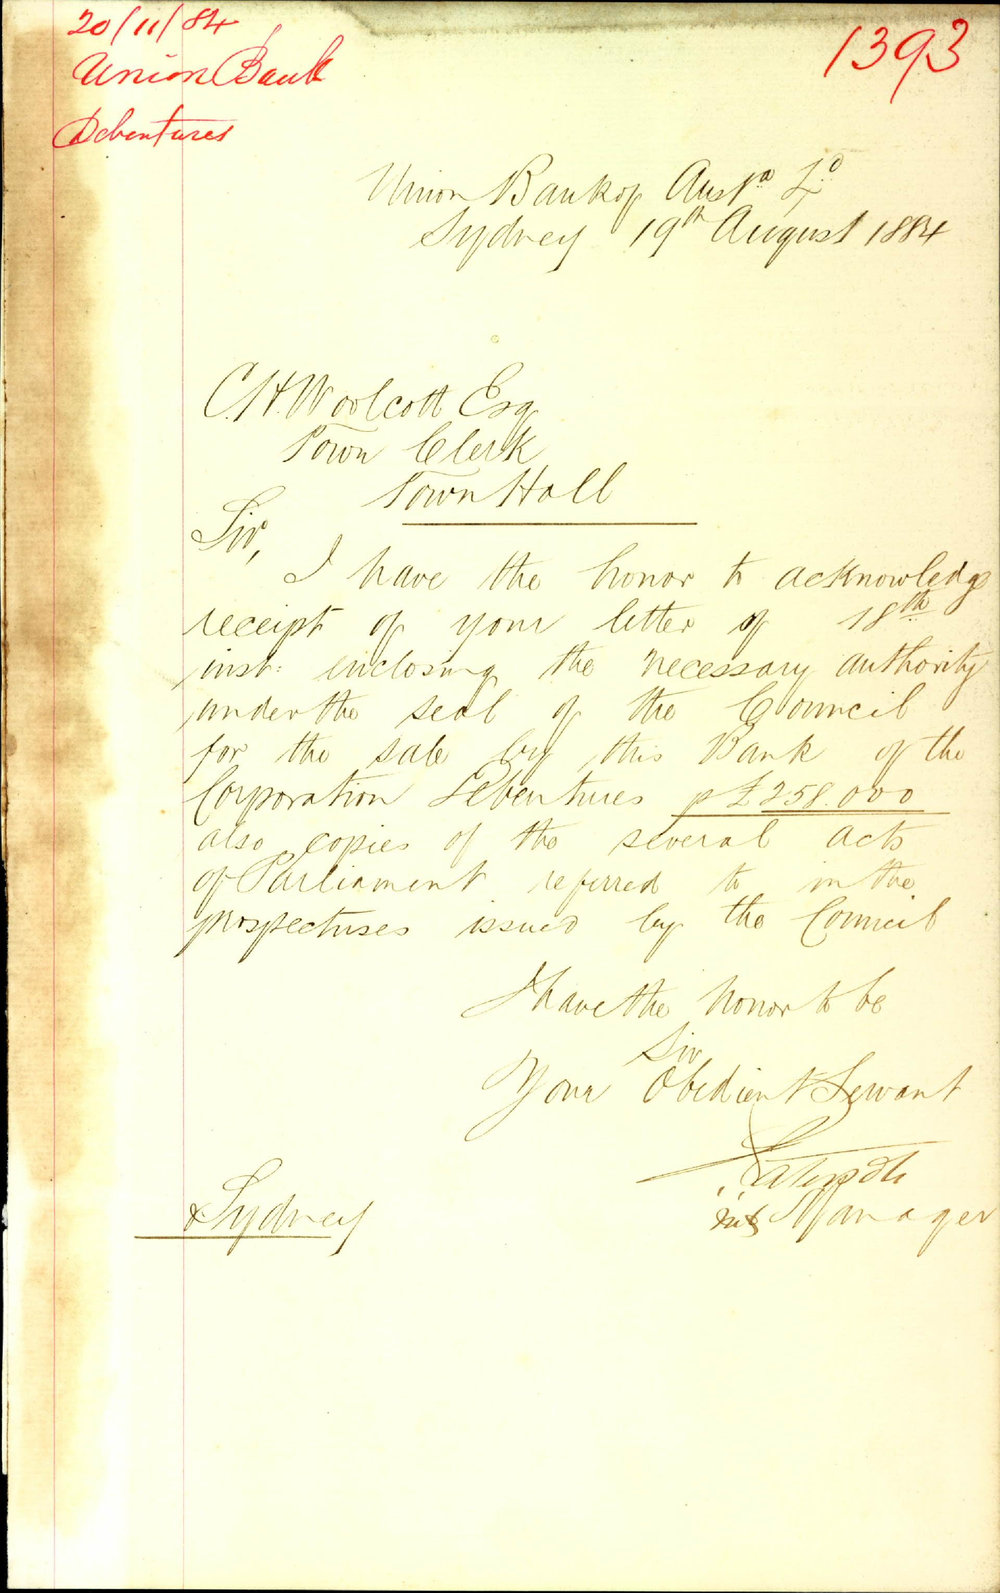 20/11/84
1393
Union Bank
Debentures
Union Bank of Austa. Ld.
Sydney 19th August 1884
C.H. Woolcott Esq
Town Clerk
Town Hall
Sir,
I have the honor to acknowledge
receipt of your letter of 18th
inst: inclosing the necessary authority
under the seal of the Council
for the sale by this Bank of the
Corporation Debentures p £258.000
also copies of the several acts
of Parliament referred to in the
prospectuses issued by the Council
I have the honor to be
Sir
Your Obedient Servant
Manager
Sydney